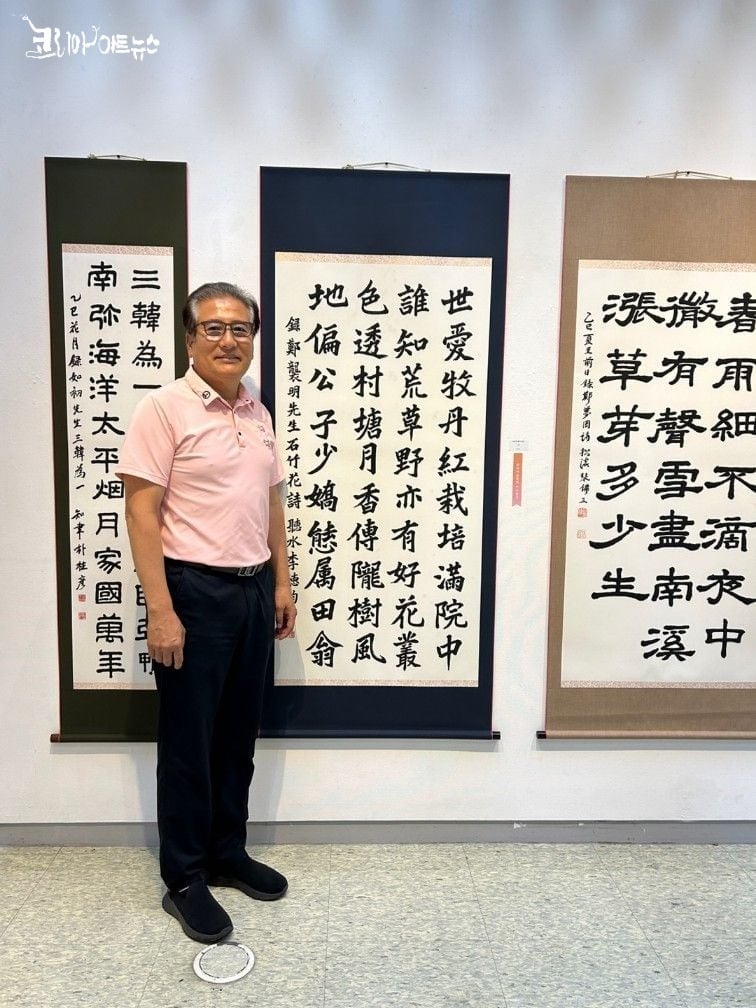 코리아아트뉴스
三韓為一
南弥海洋太平烟月家國萬年
乙巳花月錄如初先生三韓為一
世愛牧丹紅栽培滿院中
誰知荒草野亦有好花叢
色透村塘月香傳隴樹風
地偏公子少嬌態属田翁
錄鄭襲明先生石竹花詩 聽水李德
春雨細不滴夜中
微有聲雪盡南溪
漲草芽多少生
乙巳夏至前日錄鄭夢周詩